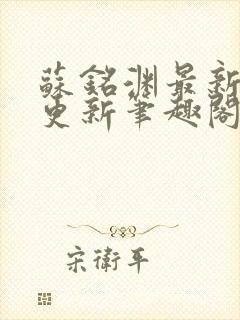 蘇銘淵最新
更新筆趣閣
宋衛平